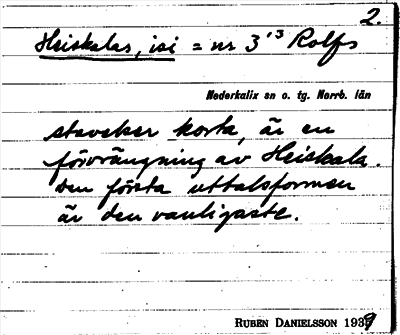 2.
Heiskalas, isi = nr 3'3 Rolfs
Nederkalix sn o. tg. Norrb. län
stavelser korta, är en
förvrängning av Heiskala.
Den första uttalsformen
är den vanligaste.
RUBEN DANIELSSON 1939